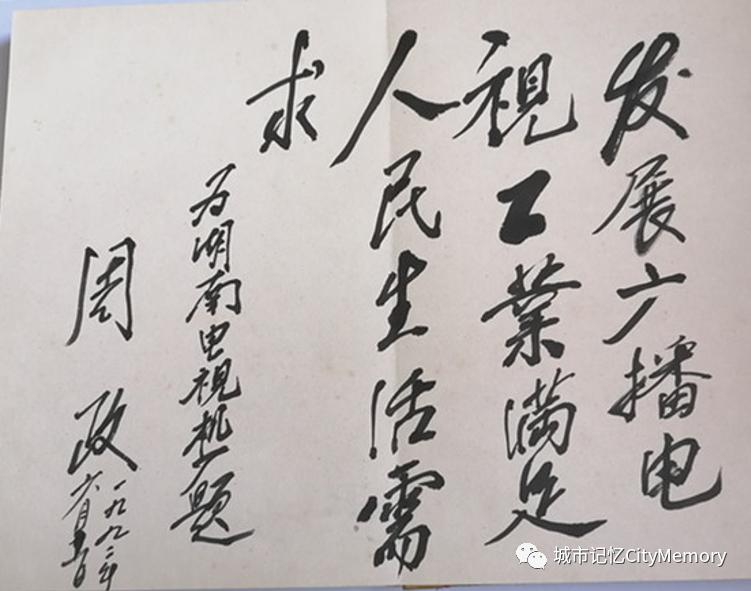 发展广播电
視工業满足
人民生活需
求
为湖南电視机厂题
周政
一九九二年
六月五日
城市记忆CityMemory